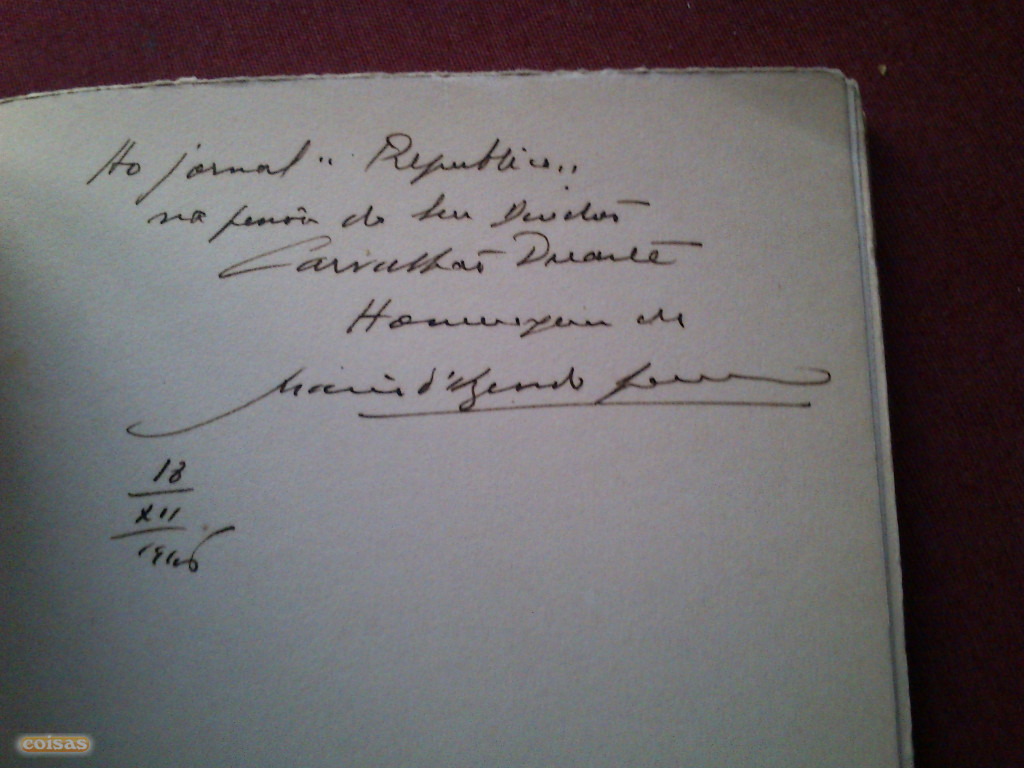 Ao jornal "República"
na pessoa do seu Director
Carvalhão Duarte
Homenagem de
Mário d'Azevedo Gomes
18
XII
1946
coisas